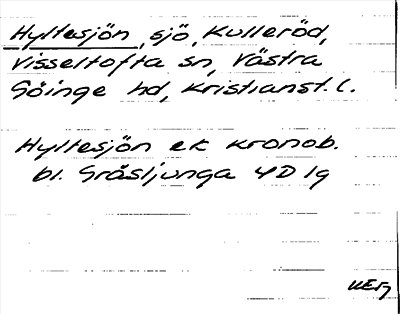 Hyltesjön, sjö, Kulleröd,
Visseltofta sn, Västra
Göinge hd, Kristianst. l.
Hyltesjön ek kronob.
bl. Gråsljunga 4D 1g